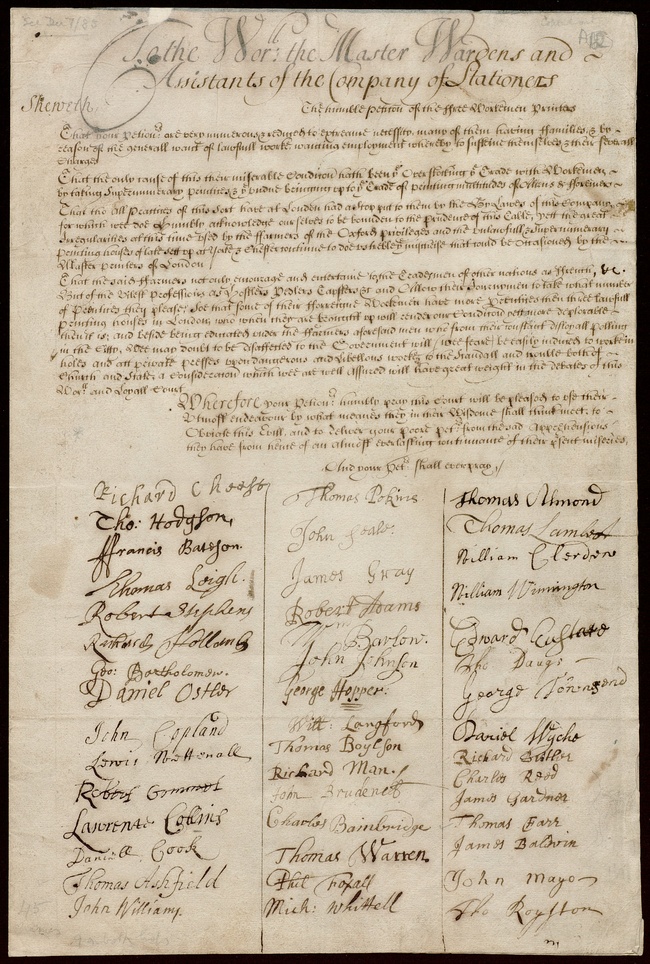 To the Wor:ll the Master Wardens and
Assistants of the Company of Stationers
Sheweth
The humble petition of the ffree Workemen Printers
That your Petiton:rs are very numerous & reduced to extreame necessity, many of them having ffamilies, & by
reason of the generall want of lawfull worke wanting employment whereby to susteine themselves & their severall
Charges
That the only cause of this their miserable Condition hath been ye Overstocking ye Trade with Workemen,
by taking Supernumerary prentices, & ye undue bringing up to ye Trade of printing multitudes of Aliens & fforeiners
That tho all Practices of this sort have at London had a stop put to them by the By Lawes of this Company,
for which wee doe humbly acknowledge ourselves to be bounden to the prudence of this Table, yett the great
Irregularities at this time used by the ffarmers of the Oxford priviledges and the unlawfull, & Supernumerary
printing houses of late sett up at York & Chester continue to doe us the like injustice that could be occasioned by the
Master printers of London
That the said ffarmers not only encourage and entertaine to the Trade men of other nations as ffrench, &c.
But of the Vilest Professions as Hostlers Pedlers Tapsters & and Allow their Journymen to take what number
of Prentices they please, Soe that some of their fforreigne Workemen have more Prentices then three lawfull
printing houses in London, who when they are brought up will render our Condition yett more deplorable
then it is; and beside being educated under the ffarmers aforesaid men who from their constant disloyall polling
in the Citty, Wee may doubt to be disaffected to the Government will (wee feare) be easily induced to worke in
holes and att private Presses upon dangerous and Libellous workes to the Scandall and trouble both of
Church and State; a Consideration which wee are well assured will have great weight in the debates of this
Wor:ll and Loyall Court.
Wherefore your Petion:rs humbly pray this Court will be pleased to use their
Utmost endeavour by what meanes they in their Wisdome shall think meet, to
Obviate this Evill, and to deliver your poore Pet:rs from the sad Apprehensions
they have from hence of an almost everlasting continuance of their present miseries,
And your Pet:rs shall ever pray
Richard Cheese
Tho: Hodgson,
ffrancis Batson.
Thomas Leigh.
Robert Stephens
Richard Holland
Geo: Bartholomew.
Daniel Ostler
John Copland
Lewis Nottenall
Robert
Lawrence Collins
Daniell Cook
Thomas Ashfield
John Williams
Thomas
John
James Gray
Robert Adams
Wm Barlow.
John Johnson
George Hopper:
Will: Langford
Thomas Boylson
Richard Man.
John Brudenell
Charles Bainbridge
Thomas Warren
Phil Foxall
Mich: Whittell
Thomas Almond
Thomas Lambert
William Clerdew
William Winnington
Edward Eustace
Tho Daugs
George Townsend
Daniel Wyche
Richard Butler
Charles Reod
James Gardner
Thomas Farr
James Baldwin
John Mayo
Tho Royston